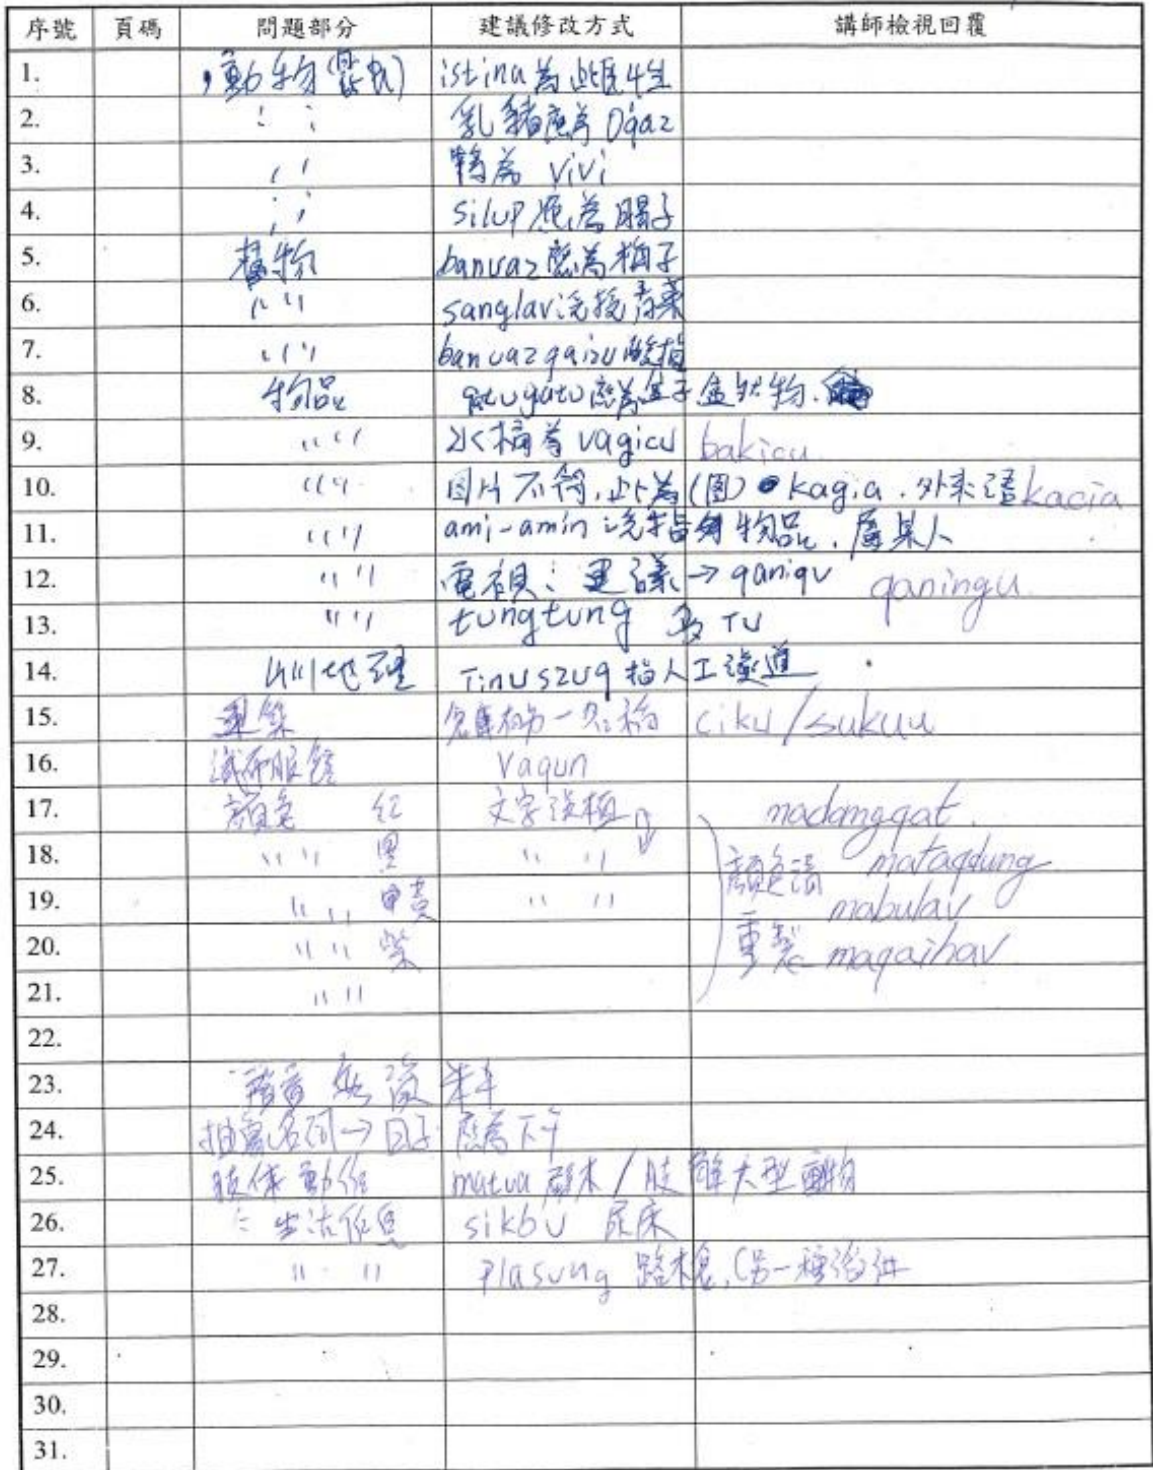 序號 頁碼 問題部分 建議修改方式 講師檢視回覆
1. 動物(昆虫) istina為雌性
2. 〃 乳豬應為 Oqaz
3. 〃 鴨為 vivi
4. 〃 silup 應為腸子
5. 植物 banuaz應為梅子
6. 〃 sanglav 泛指青菜
7. 〃 banuaz qaizu
8. 物品 應為盒子盛狀物.
9. 〃 水桶為 vagicu bakicu
10. 〃 圖片不符,此為(圖) kagia.外來語 kacia
11. 〃 ami-amin 泛指物品.屬某人
12. 〃 電視:建議→qaniqu qaningu
13. 〃 tungtung 為 TU
14. 山川地理 Tinuszuq 指人工
15. 建築 倉庫 另一名稱 ciku/sukuu
16. 織布服飾 vaqun
17. 顏色 紅 文字誤植 madanggqat.
18. 〃 黑 〃 顏色請 mataqdung
19. 〃 黃 〃 mabulav
20. 〃 紫 重製 maqaihav
21. 〃
22.
23. 語音 無資料
24. 抽象名詞→日子 應為下午
25. 肢体動作 matua 大型動物
26. 〃 生活作息 sikbu 尿床
27. 〃 Plasung
28.
29.
30.
31.